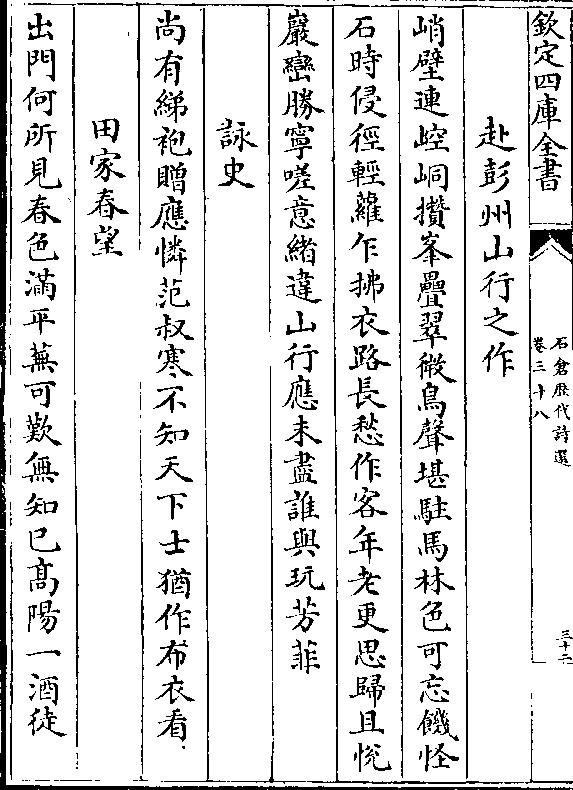 欽定四庫全書
石倉歷代詩選
卷三十八
三十二
赴彭州山行之作
峭壁連崆峒攢峯疊翠微鳥聲堪駐馬林色可忘饑怪
石時侵徑輕蘿乍拂衣路長愁作客年老更思歸且恱
巖巒勝寧嗟意緒違山行應未盡誰與玩芳菲
詠史
尚有綈袍贈應憐范叔寒不知天下士猶作布衣看
田家春望
出門何所見春色滿平蕪可歎無知已髙陽一酒徒